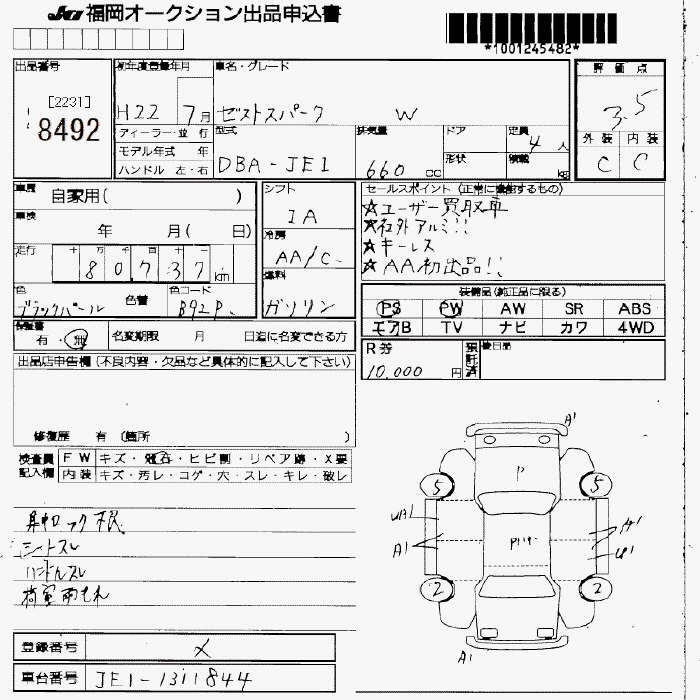 JU 福岡オークション出品申込書
*1001245482*
出品番号
[2231]
8492
初年度登録年月
H22 7月
車名・グレード
ゼストスパーク W
評価点
3.5
外装 内装
C C
ディーラー・並行
モデル年式 年
ハンドル 左・右
型式
DBA-JE1
排気量
660 cc
ドア
形状
定員
4人
積載
kg
車歴
自家用( )
車検
年 月( 日)
走行
十 万 千 百 十
80737km
色
ブラックパール
色替
色コード
B92P
シフト
IA
冷房
AA/C
燃料
ガソリン
セールスポイント (正常に機能するもの)
☆ユーザー買取車
☆社外アルミ!!
☆キーレス
☆AA初出品!!
装備品(純正品に限る)
PS PW AW SR ABS
エアB TV ナビ カワ 4WD
保証書
有・無
名変期限 月 日迄に名変できる方
R券
10,000円
預託済
後日品
出品店申告欄(不良内容・欠品など具体的に記入して下さい)
修復歴 有 (箇所 )
検査員記入欄
FW キズ・飛石・ヒビ割・リペア跡・X要
内装 キズ・汚レ・コゲ・穴・スレ・キレ・破レ
集中ロック不良
シートスレ
ハンドルスレ
A1
P
5 5
UA1
A1
A1
U1
2 2
A1
登録番号
メ
車台番号
JE1-1311844